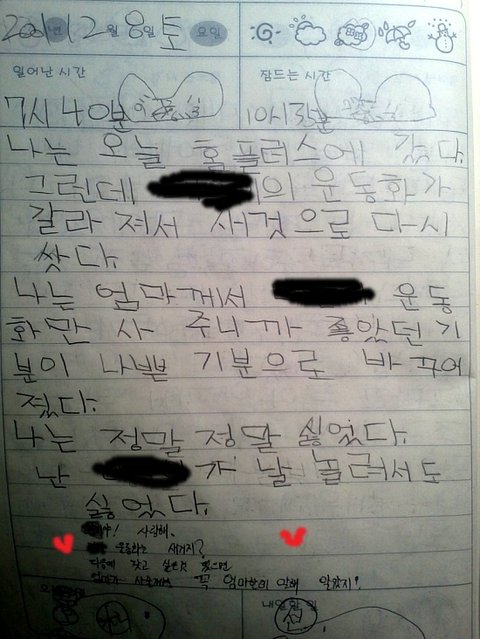 2001년 12월 8일 토요일
일어난 시간 잠드는 시간
7시 40분 10시
나는 오늘 홈플러스에 갔다.
그런데 의 운동화가
갈라 져서 새것으로 다시
샀다.
나는 엄마께서 운동
화만 사 주니까 좋았던 기
분이 나쁜 기분으로 바꾸어
졌다.
나는 정말 정말 싫었다.
난 가 날 놀려서도
싫었다.
야! 사랑해.
운동화는 새거지?
다음에 갖고 싶은것 있으면
엄마가 꼭 엄마한테 말해 알았지?
내일 할 일